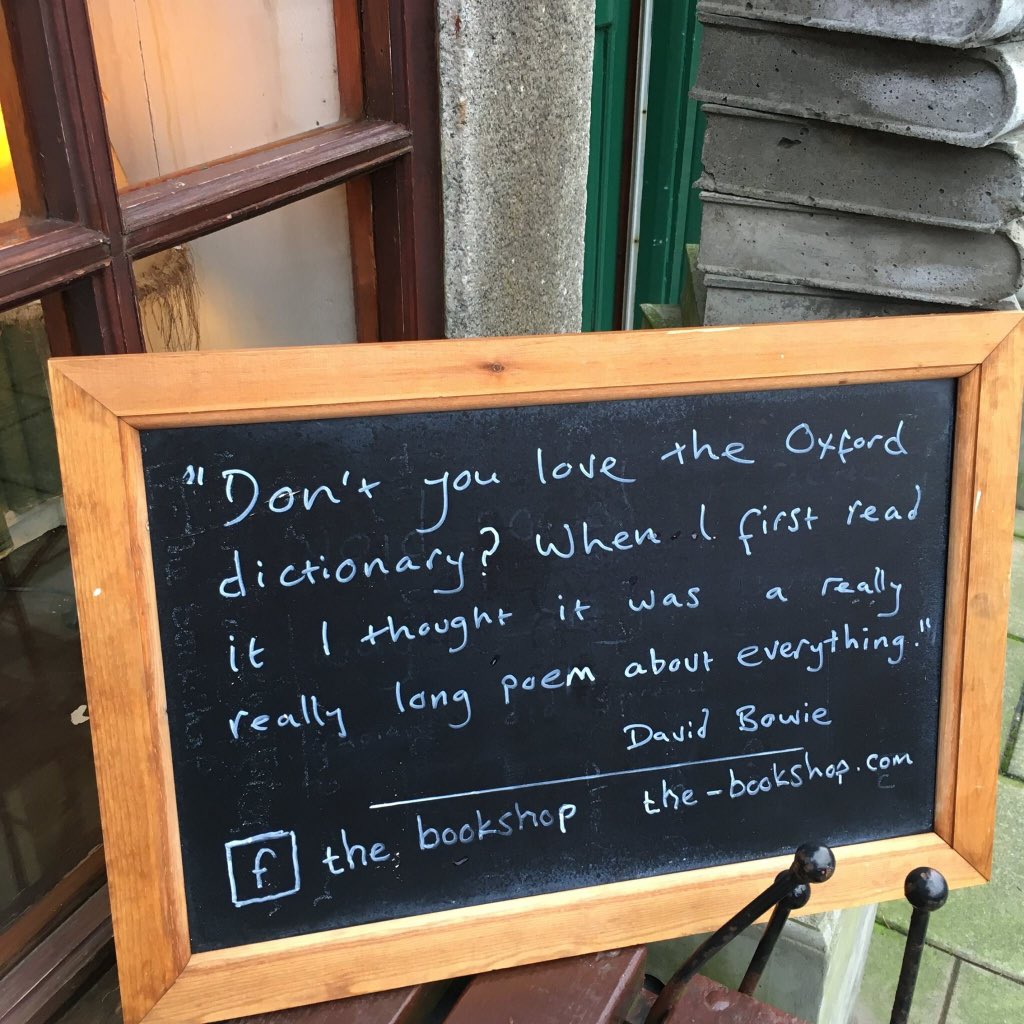 "Don't you love the Oxford
dictionary? When I first read
it I thought it was a really
really long poem about everything."
David Bowie
f the bookshop the-bookshop.com